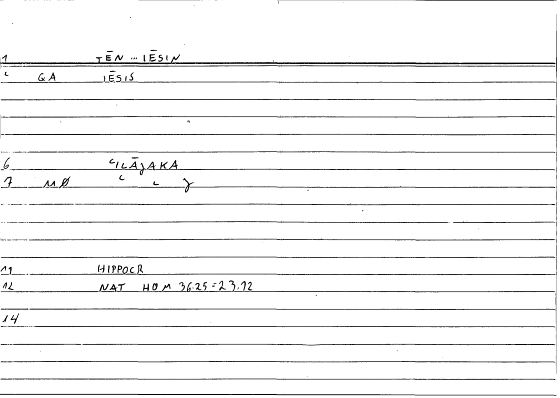 1 TĒN ... IĒSIN
GA IĒSIS
6 ʿILĀǧAKA
7 MØ
11 HIPPOCR
12 NAT HOM 36.25 = 23.12
14